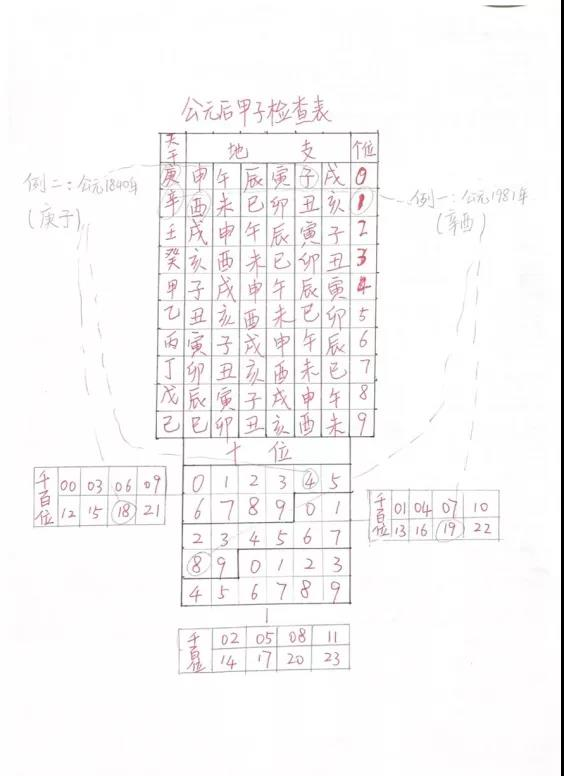 公元后甲子检查表
天干 地支 个位
庚 申 午 辰 寅 子 戌 0
辛 酉 未 巳 卯 丑 亥 1
壬 戌 申 午 辰 寅 子 2
癸 亥 酉 未 巳 卯 丑 3
甲 子 戌 申 午 辰 寅 4
乙 丑 亥 酉 未 巳 卯 5
丙 寅 子 戌 申 午 辰 6
丁 卯 丑 亥 酉 未 巳 7
戊 辰 寅 子 戌 申 午 8
己 巳 卯 丑 亥 酉 未 9
例二:公元1840年
(庚子)
例一:公元1981年
(辛酉)
十位
0 1 2 3 4 5
6 7 8 9 0 1
2 3 4 5 6 7
8 9 0 1 2 3
4 5 6 7 8 9
千百位 00 03 06 09
12 15 18 21
千百位 01 04 07 10
13 16 19 22
千百位 02 05 08 11
14 17 20 23